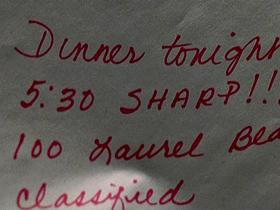 Dinner tonight
5:30 SHARP!!
100 Laurel Bea
Classified